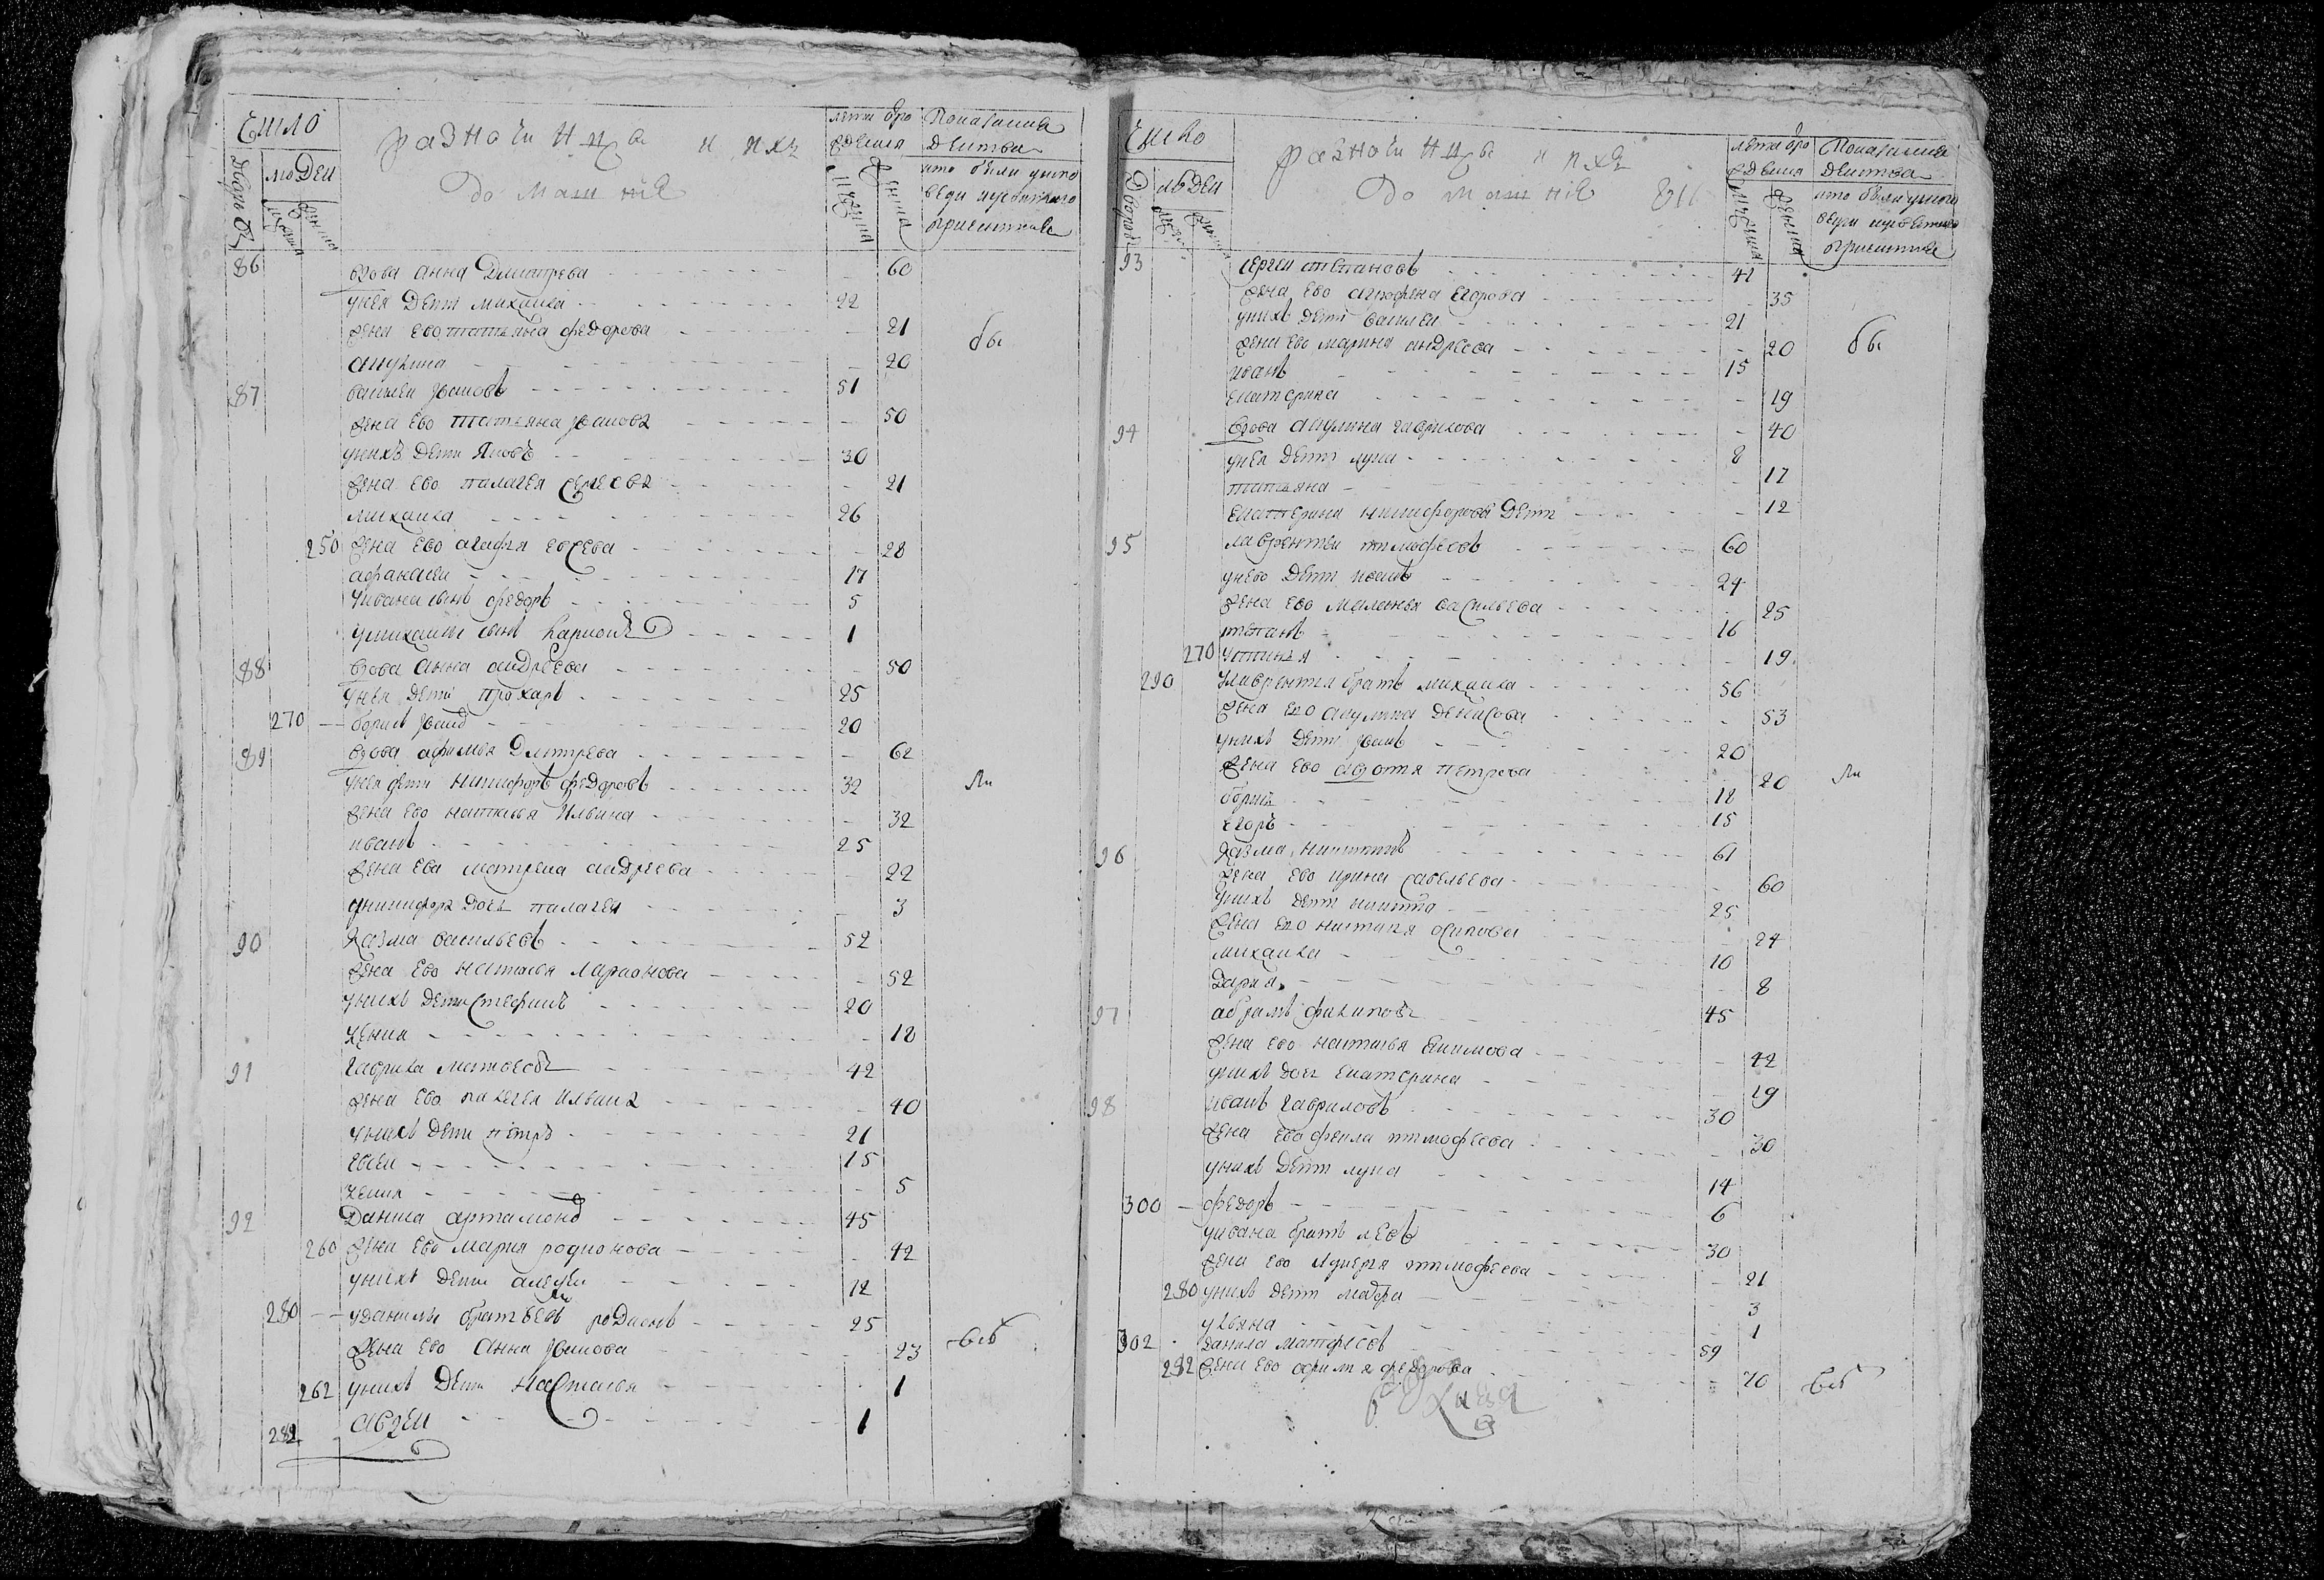 Число
Дворовъ
людеи
мужеска
женска
разночинцы и ихъ
домашние
лета от ро
ждения
мужеска
женска
Показание
действа
кто были у исповеди и святаго
причастия
86 вдова анна Дмитрева 60
унея дети михаила 22
жена ево татьяна федорова 21
акулина 20
бы
87 василеи Івановъ 51
жена ево татьяна Іванова 50
унихъ дети Яковъ 30
жена ево палагея 21
михаила 26
250 жена ево агафья 28
афанасеи 17
уивана сынъ федоръ 5
умихаилы сынъ 1
88 вдова анна андреева 50
унея дети прохаръ 25
270 борисъ 20
89 вдова афимья Дмитрева 62
унея дети никифоръ федоровъ 32
ли
жена ево наталья Ильина 32
иванъ 25
жена ева матрена андреева 22
уникифора дочь палагея 3
90 Казма васильевъ 52
жена ево наталья Ларионова 52
унихъ дети Стефанъ 20
18
91 гаврила матвеевъ 42
жена ево палагея Ильина 40
унихъ дети петръ 21
евсеи 15
5
92 Данила артамонъ 45
260 жена ево мария родионова 42
унихъ дети алексеи 12
280 уданилы братъ родионъ 25
жена ево анна Іванова 23
262 унихъ дети Насталья 1
282 авдеи 1
Число
Дворовъ
людеи
разночинцы и ихъ
домашние 816
лета от ро
ждения
мужеска
женска
Показание
действа
кто были у исповеди и святаго
причастия
93 сергеи степановъ 41
жена ево агрофена Егорова 35
унихъ дети василеи 21
жена ево марина андреева 20
бы
иванъ 15
екатерина 19
94 вдова акулина гаврилова 40
унея дети лука 8
татьяна 17
екатерина никифоровы дети 12
95 лаврентеи тимофеевъ 60
унево дети иванъ 24
жена ево маланья васильева 25
степанъ 16
270 устинья 19
290 улаврентия братъ михаила 56
жена ево акулина денисова 53
унихъ дети Іванъ 20
жена ево авдотя петрова 20
ли
18
егоръ 15
96 Казма никитинъ 61
жена ево ирина савельева 60
унихъ дети никита 25
жена ево наталя осипова 24
михаила 10
дария 8
97 абрамъ филиповъ 45
жена ево наталья Екимова 42
унихъ дочь екатерина 19
98 иванъ гавриловъ 30
жена ево фекла тимофеева 30
унихъ дети лука 14
300 федоръ 6
уивана братъ левъ 30
жена ево лукерия тимофеева 21
280 унихъ дети мавра 3
ульяна 1
302 данила матфеевъ 59
282 жена ево афимя федорова 70